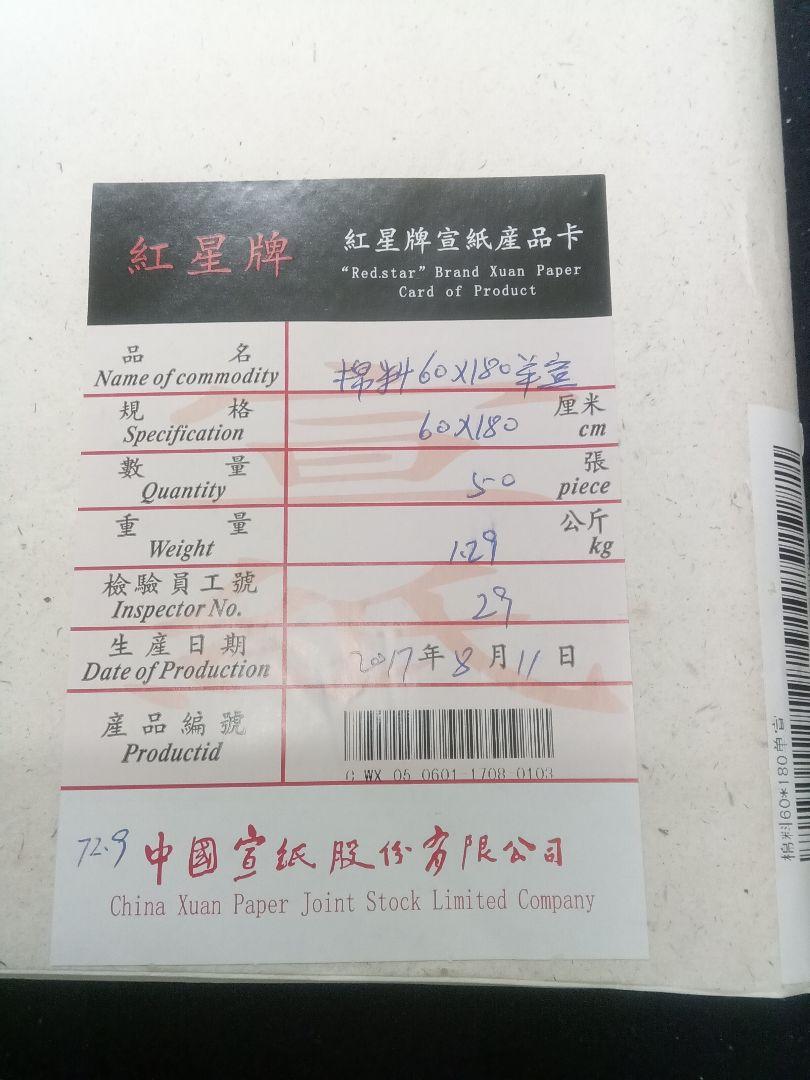 紅星牌
紅星牌宣紙産品卡
“Red.star” Brand Xuan Paper
Card of Product
品 名
Name of commodity
棉料60X180单宣
規 格
Specification
60X180
厘米
cm
數 量
Quantity
50
張
piece
重 量
Weight
1.29
公斤
kg
檢驗員工號
Inspector No.
29
生産日期
Date of Production
2017年8月11日
産品編號
Productid
C WX 05 0601-1708-0103
72.9
中國宣紙股份有限公司
China Xuan Paper Joint Stock Limited Company
棉料60*180单宣